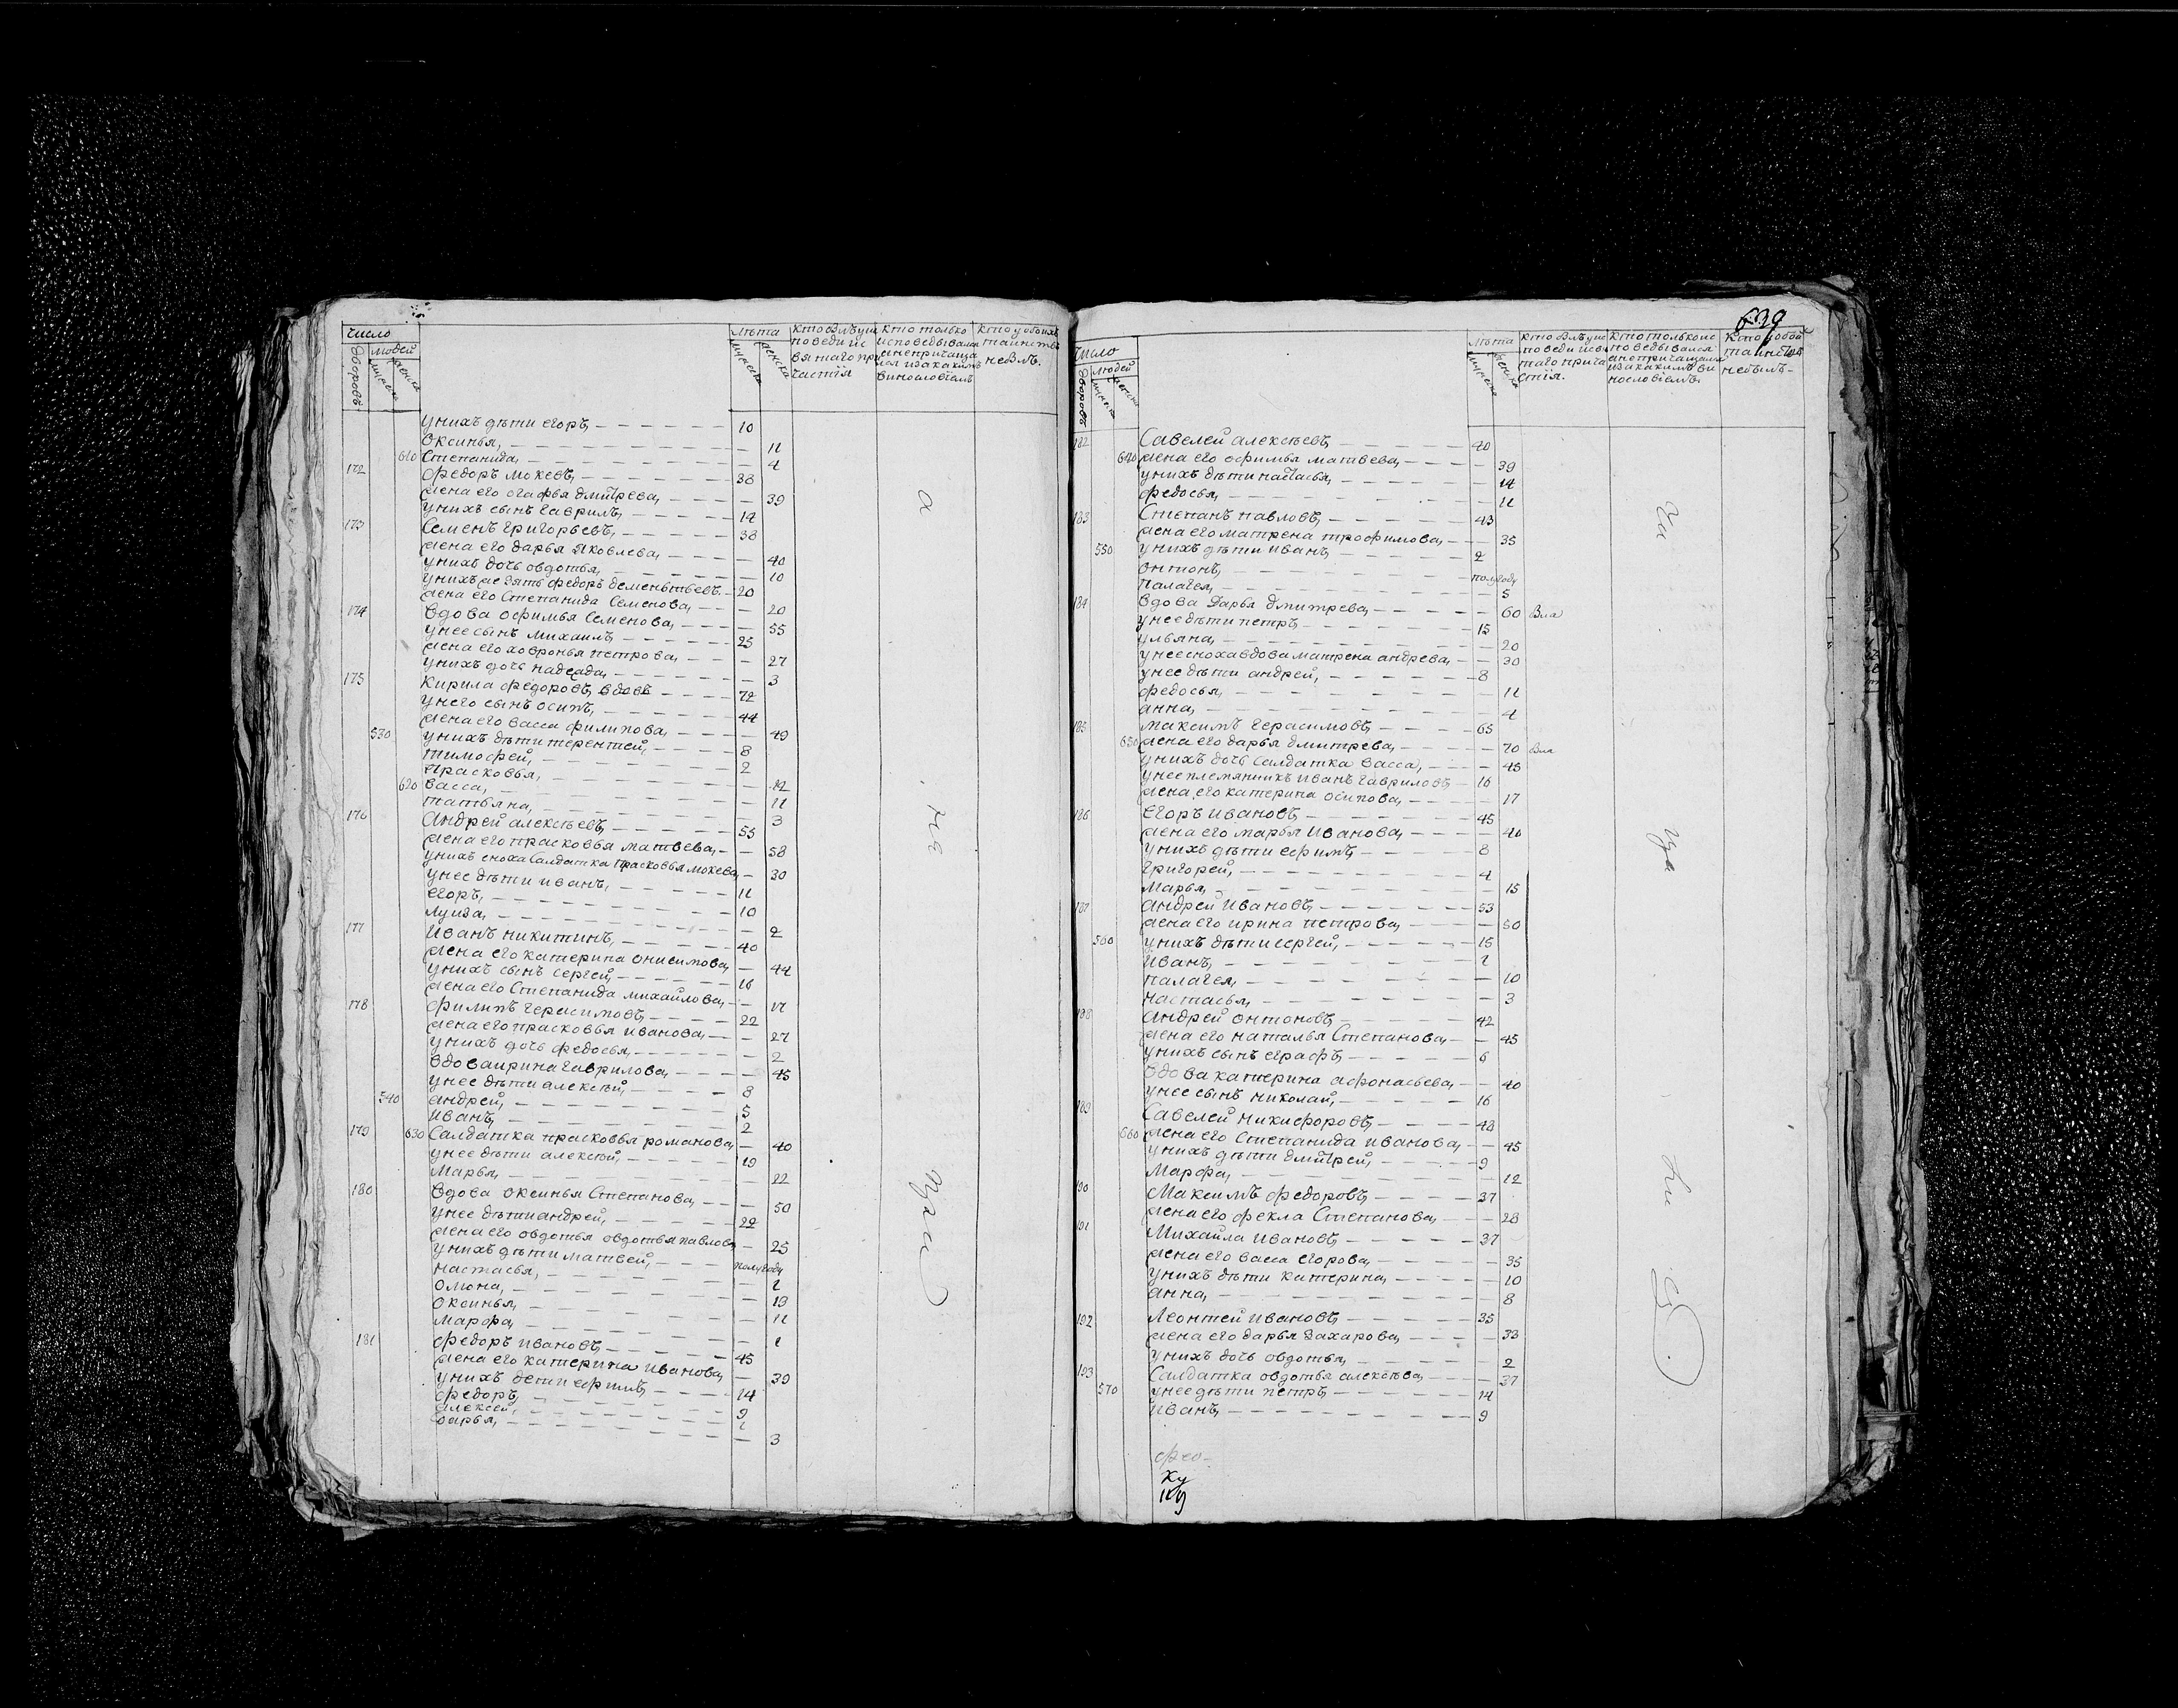 число
людей
дворовъ
мужеска
женска
лѣта
мужеска
женска
кто былъ у исповеди и святаго причастїя
кто только исповедывался а непричащался и за какимъ винословїемъ
кто у обоихъ таинствъ небылъ.
у нихъ дѣти егоръ 10
оксинья 11
610 степанида 4
172 федоръ мокевъ 38
жена его огафья дмитрева 39
у нихъ сынъ гаврилъ 14
173 семенъ григорьевъ 38
жена его дарья яковлева 40
у нихъ дочь овдотья 10
у нихъ же зять федоръ дементьевъ 20
жена его степанида семенова 20
174 вдова офимья семенова 55
у нее сынъ михаилъ 25
жена его ховронья петрова 27
у нихъ дочь надежда 3
175 кирила федоровъ вдовъ 72
у него сынъ осипъ 44
жена его васса филипова 49
530 у нихъ дѣти терентей 8
тимофей 2
прасковья 12
620 васса 11
татьяна 3
176 андрей алексѣевъ 55
жена его прасковья матвева 58
у нихъ сноха салдатка прасковья мокева 30
у нее дѣти иванъ 11
егоръ 10
луиза 2
177 иванъ никитинъ 40
жена его катерина онисимова 44
у нихъ сынъ сергей 16
жена его степанида михайлова 17
178 филипъ герасимовъ 22
жена его прасковья иванова 27
у нихъ дочь федосья 2
вдова ирина гаврилова 45
у нее дѣти алексѣй 8
540 андрей 5
иванъ 2
179 630 салдатка прасковья романова 40
у нее дѣти алексѣй 19
марья 22
180 вдова оксинья степанова 50
у нее дѣти андрей 22
жена его овдотья овдотья павлова 25
у нихъ дѣти матвей полугоду
настасья 2
омона 19
оксинья 11
марфа 1
181 федоръ ивановъ 45
жена его катерина иванова 39
у нихъ дети ефимъ 14
федоръ 9
алексей 2
дарья 3
639
число
людей
дворовъ
мужеска
женска
лѣта
мужеска
женска
кто былъ у исповеди и святаго причастїя.
кто только исповедывался а непричащался и за какимъ винословїемъ
кто у обоихъ таинствъ небылъ
182 савелей алексѣевъ 40
640 жена его офимья матвева 39
у нихъ дѣти настасья 14
федосья 11
183 степанъ павловъ 43
жена его матрена трофимова 35
550 у нихъ дѣти иванъ 2
онтонъ полугоду
палагея 5
184 вдова дарья дмитрева 60
у нее дѣти петръ 15
ульяна 20
у нее сноха вдова матрена андрева 30
у нее дѣти андрей 8
федосья 11
анна 4
185 максимъ герасимовъ 65
650 жена его дарья дмитрева 70
у нихъ дочь салдатка васса 45
у нее племянникъ иванъ гавриловъ 16
жена его катерина осипова 17
186 егоръ ивановъ 45
жена его марья иванова 40
у нихъ дѣти ефимъ 8
григорей 4
марья 15
187 андрей ивановъ 53
жена его ирина петрова 50
560 у нихъ дѣти сергей 15
иванъ 2
палагея 10
настасья 3
188 андрей онтоновъ 42
жена его наталья степанова 45
у нихъ сынъ еграфъ 6
вдова катерина афонасьева 40
у нее сынъ николай 16
189 савелей никифоровъ 48
660 жена его степанида иванова 45
у нихъ дѣти дмитрей 9
марфа 12
190 максимъ федоровъ 37
жена его фекла степанова 28
191 михайла ивановъ 37
жена его васса егорова 35
у нихъ дѣти катерина 10
анна 8
192 леонтей ивановъ 35
жена его дарья захарова 33
у нихъ дочь овдотья 2
193 салдатка овдотья алексѣва 37
570 у нее дѣти петръ 14
иванъ 9